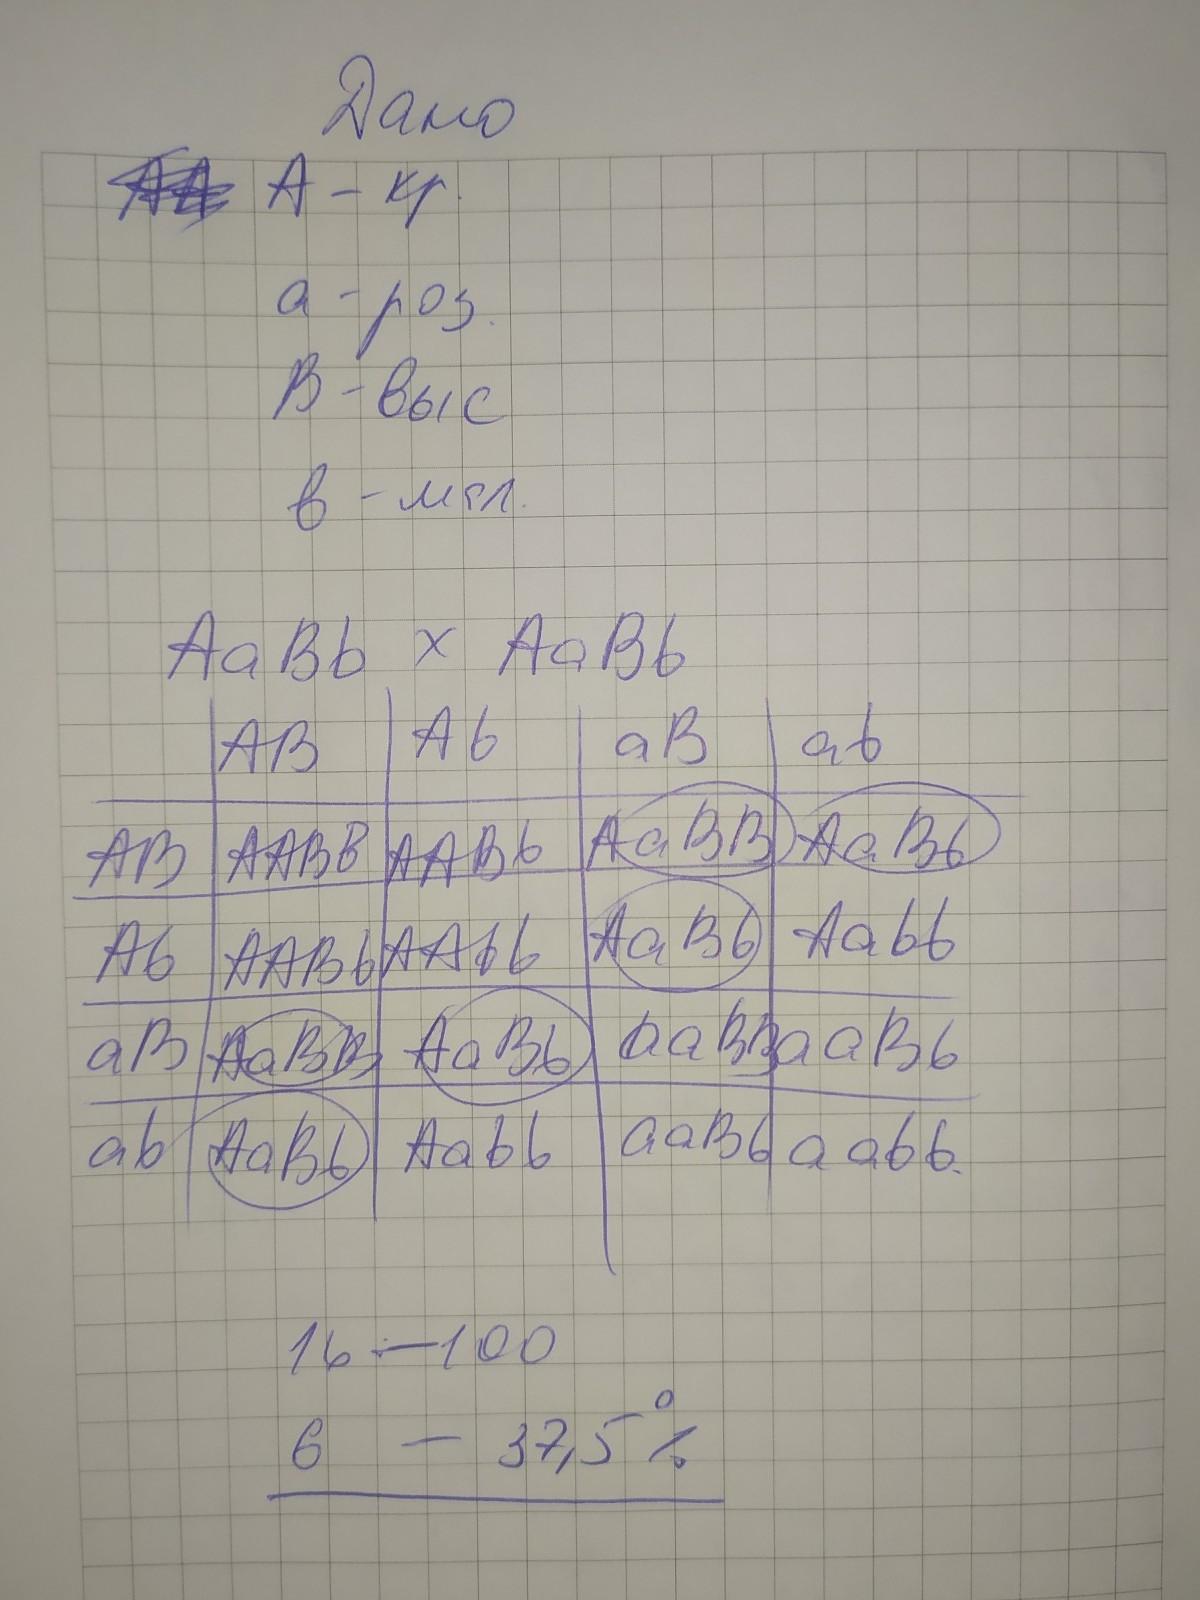 Дано
А - кр.
а - роз.
В - выс
в - мел.
AaBb x AaBb
AB Ab aB ab
AB AABB AABb AaBB AaBb
Ab AABb AAbb AaBb Aabb
aB AaBB AaBb aaBB aaBb
ab AaBb Aabb aaBb aabb.
16 - 100
6 - 37,5 %